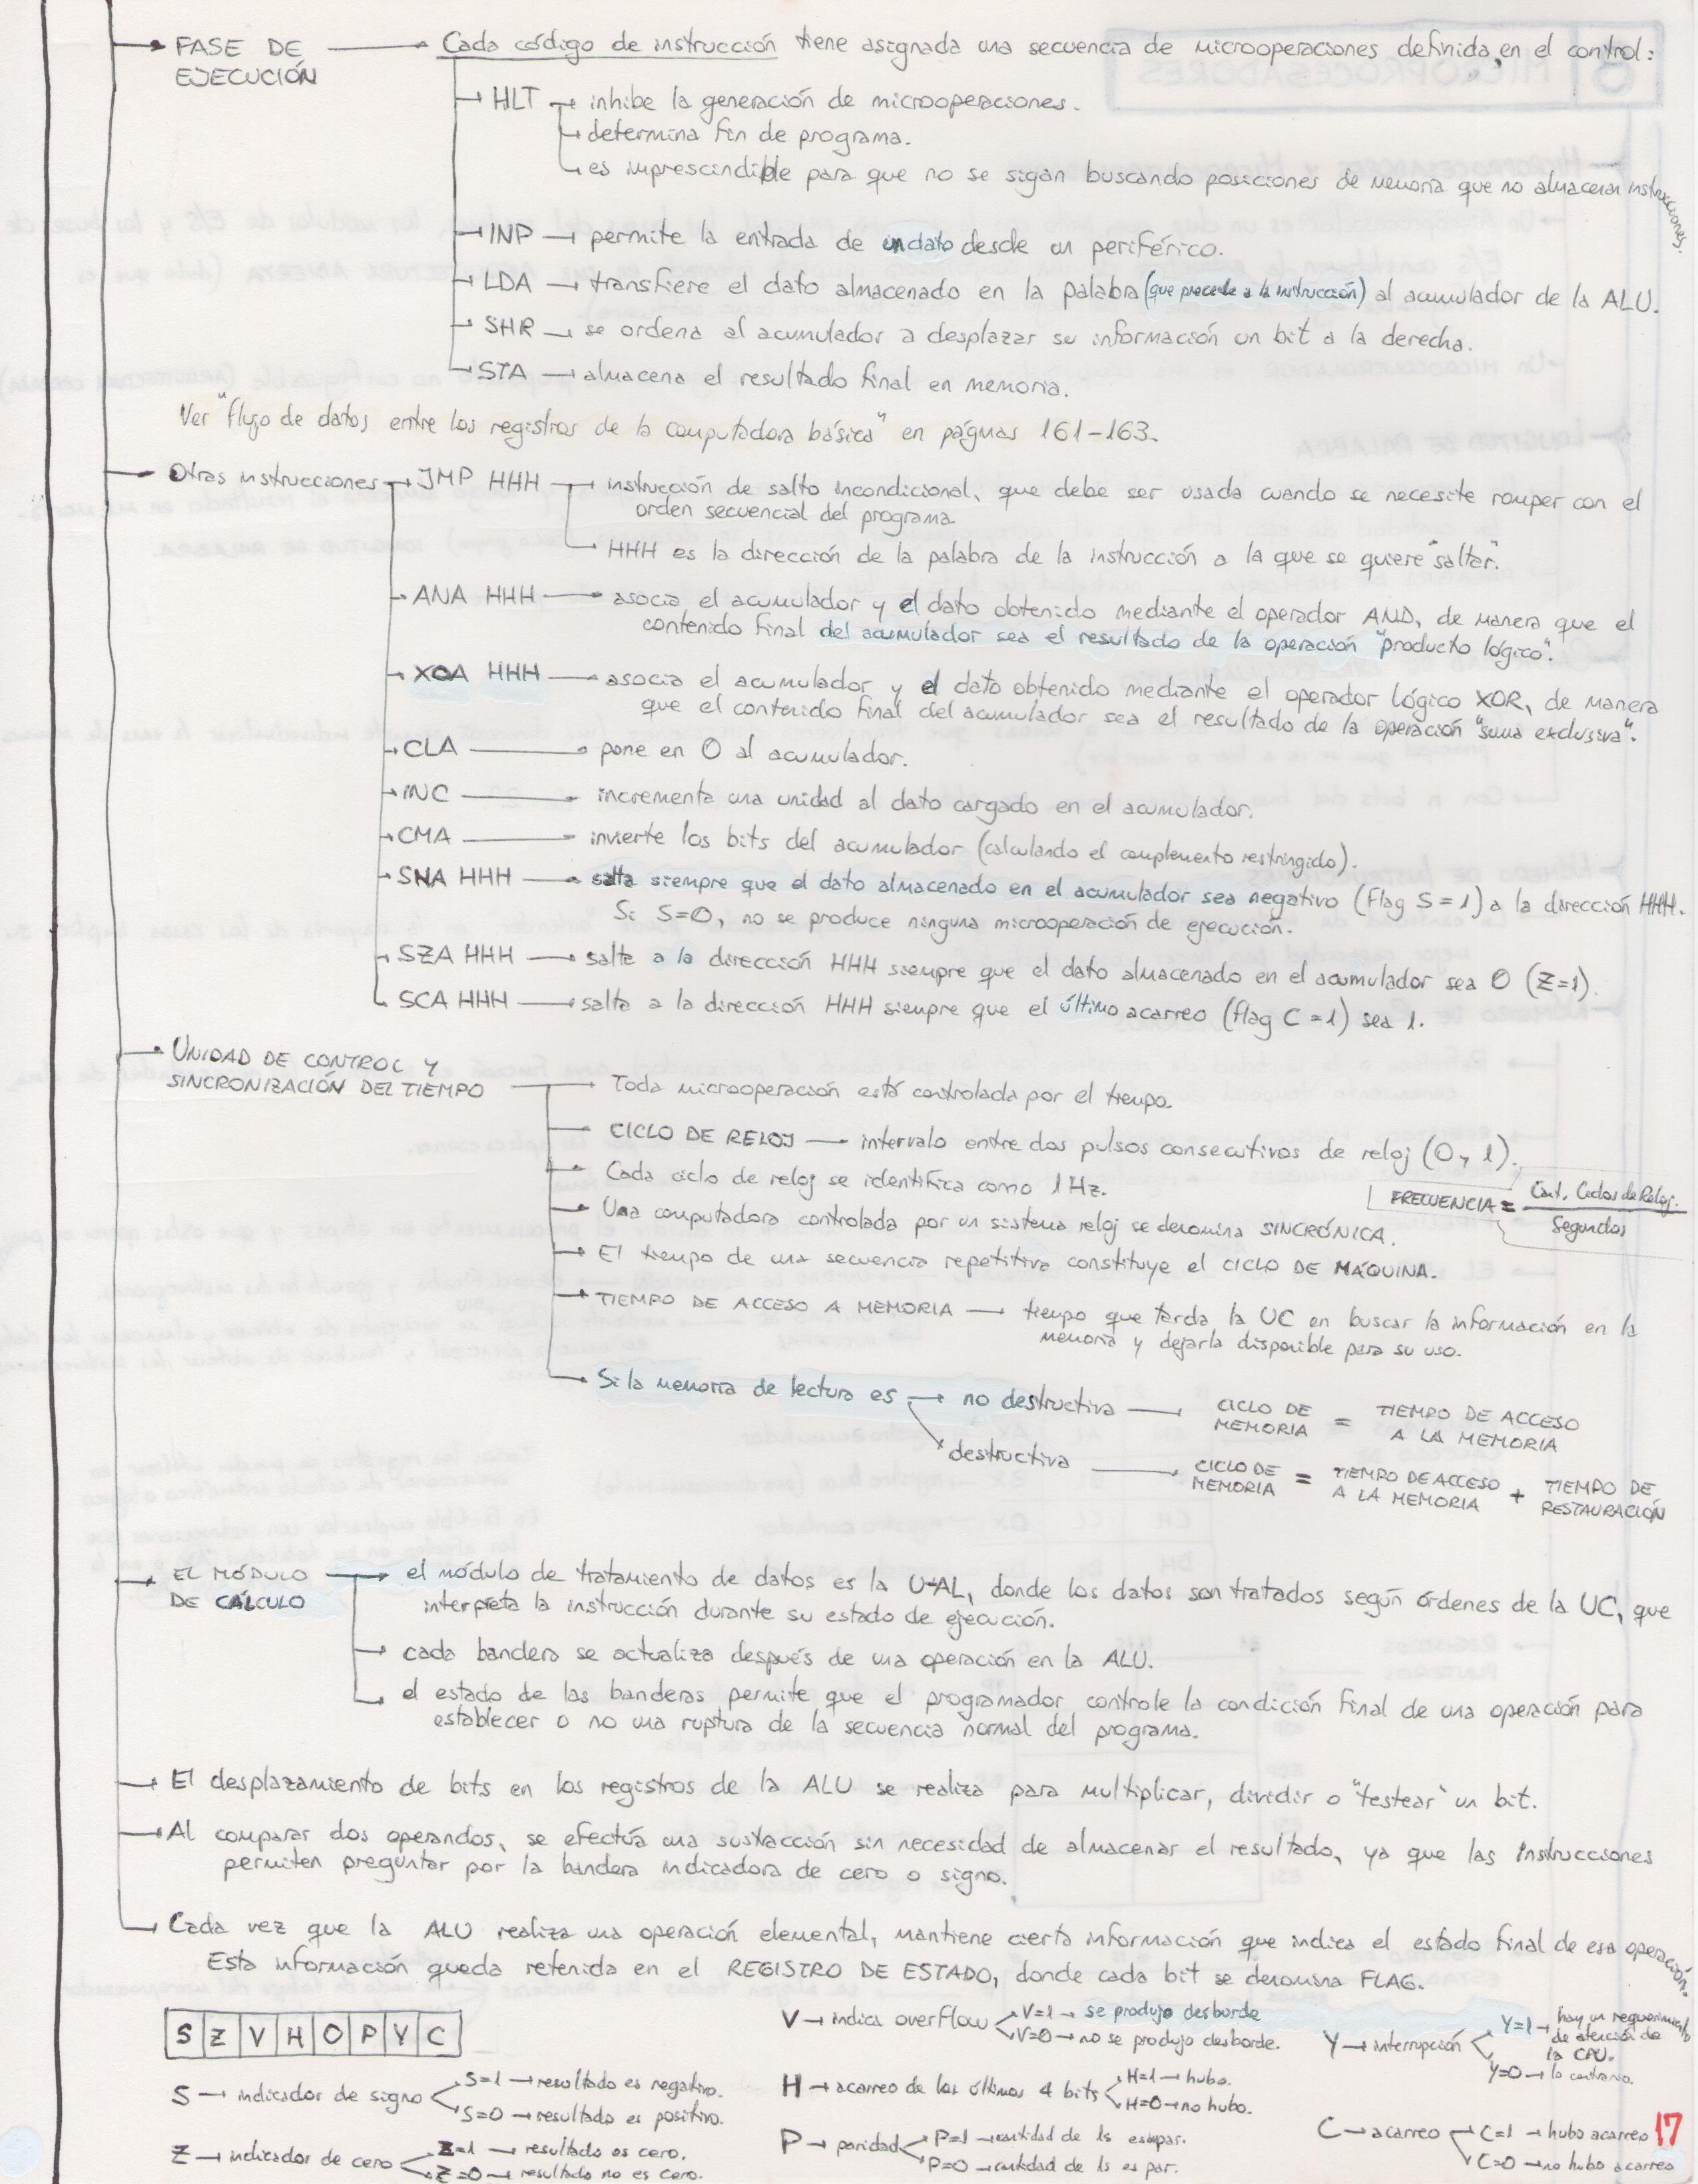 FASE DE EJECUCIÓN → Cada código de instrucción tiene asignada una secuencia de microoperaciones definida en el control:
HLT → inhibe la generación de microoperaciones.
→ determina fin de programa.
→ es imprescindible para que no se sigan buscando posiciones de memoria que no almacenan instrucciones.
INP → permite la entrada de un dato desde un periférico.
LDA → transfiere el dato almacenado en la palabra (que precede a la instrucción) al acumulador de la ALU.
SHR → se ordena al acumulador a desplazar su información un bit a la derecha.
STA → almacena el resultado final en memoria.
Ver "flujo de datos entre los registros de la computadora básica" en páginas 161-163.
Otras instrucciones → JMP HHH → instrucción de salto incondicional, que debe ser usada cuando se necesite romper con el
orden secuencial del programa
HHH es la dirección de la palabra de la instrucción a la que se quiere "saltar".
ANA HHH → asocia el acumulador y el dato obtenido mediante el operador AND, de manera que el
contenido final del acumulador sea el resultado de la operación "producto lógico".
XOA HHH → asocia el acumulador y el dato obtenido mediante el operador lógico XOR, de manera
que el contenido final del acumulador sea el resultado de la operación "suma exclusiva".
CLA → pone en 0 al acumulador.
INC → incrementa una unidad al dato cargado en el acumulador.
CMA → invierte los bits del acumulador (calculando el complemento restringido).
SNA HHH → salta siempre que el dato almacenado en el acumulador sea negativo (Flag S=1) a la dirección HHH.
Si S=0, no se produce ninguna microoperación de ejecución.
SZA HHH → salta a la dirección HHH siempre que el dato almacenado en el acumulador sea 0 (Z=1).
SCA HHH → salta a la dirección HHH siempre que el último acarreo (flag C=1) sea 1.
UNIDAD DE CONTROL Y
SINCRONIZACIÓN DEL TIEMPO → Toda microoperación está controlada por el tiempo.
CICLO DE RELOJ → intervalo entre dos pulsos consecutivos de reloj (0 y 1).
Cada ciclo de reloj se identifica como 1 Hz.
FRECUENCIA = Cant. Ciclos de Reloj / Segundos
Una computadora controlada por un sistema reloj se denomina SINCRÓNICA.
El tiempo de una secuencia repetitiva constituye el CICLO DE MÁQUINA.
TIEMPO DE ACCESO A MEMORIA → tiempo que tarda la UC en buscar la información en la
memoria y dejarla disponible para su uso.
Si la memoria de lectura es → no destructiva → CICLO DE MEMORIA = TIEMPO DE ACCESO A LA MEMORIA
destructiva → CICLO DE MEMORIA = TIEMPO DE ACCESO A LA MEMORIA + TIEMPO DE RESTAURACIÓN
EL MÓDULO DE CÁLCULO → el módulo de tratamiento de datos es la UAL, donde los datos son tratados según órdenes de la UC, que
interpreta la instrucción durante su estado de ejecución.
cada bandera se actualiza después de una operación en la ALU.
el estado de las banderas permite que el programador controle la condición final de una operación para
establecer o no una ruptura de la secuencia normal del programa.
El desplazamiento de bits en los registros de la ALU se realiza para multiplicar, dividir o "testear" un bit.
Al comparar dos operandos, se efectúa una sustracción sin necesidad de almacenar el resultado, ya que las instrucciones
permiten preguntar por la bandera indicadora de cero o signo.
Cada vez que la ALU realiza una operación elemental, mantiene cierta información que indica el estado final de esa operación.
Esta información queda retenida en el REGISTRO DE ESTADO, donde cada bit se denomina FLAG.
S Z V H O P Y C
S → indicador de signo
S=1 → resultado es negativo.
S=0 → resultado es positivo.
Z → indicador de cero
Z=1 → resultado es cero.
Z=0 → resultado no es cero.
V → indica overflow
V=1 → se produjo desborde
V=0 → no se produjo desborde.
H → acarreo de los últimos 4 bits
H=1 → hubo.
H=0 → no hubo.
P → paridad
P=1 → cantidad de 1s es impar.
P=0 → cantidad de 1s es par.
Y → interrupción
Y=1 → hay un requerimiento
de atención de
la CPU.
Y=0 → lo contrario.
C → acarreo
C=1 → hubo acarreo
C=0 → no hubo acarreo
17